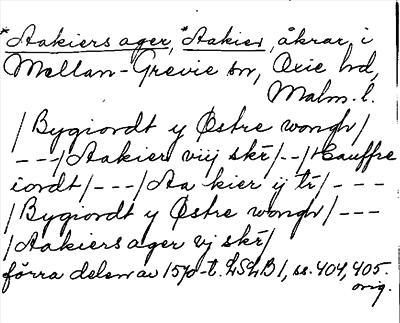 *Aakiers ager, *Aakier, åkrar, i
Mellan-Grevie sn, Oxie hd,
Malm. l.
/Bygiordt y Østre wongh/
---/Aakier viij skr/--/Hauffre
iordt/---/Aa kier ij tr/---
/Bygiordt y Østre wongh/---
/Aakiers ager vj skr/
förra delen av 1570-t. LSLB 1, ss. 404, 405.
orig.